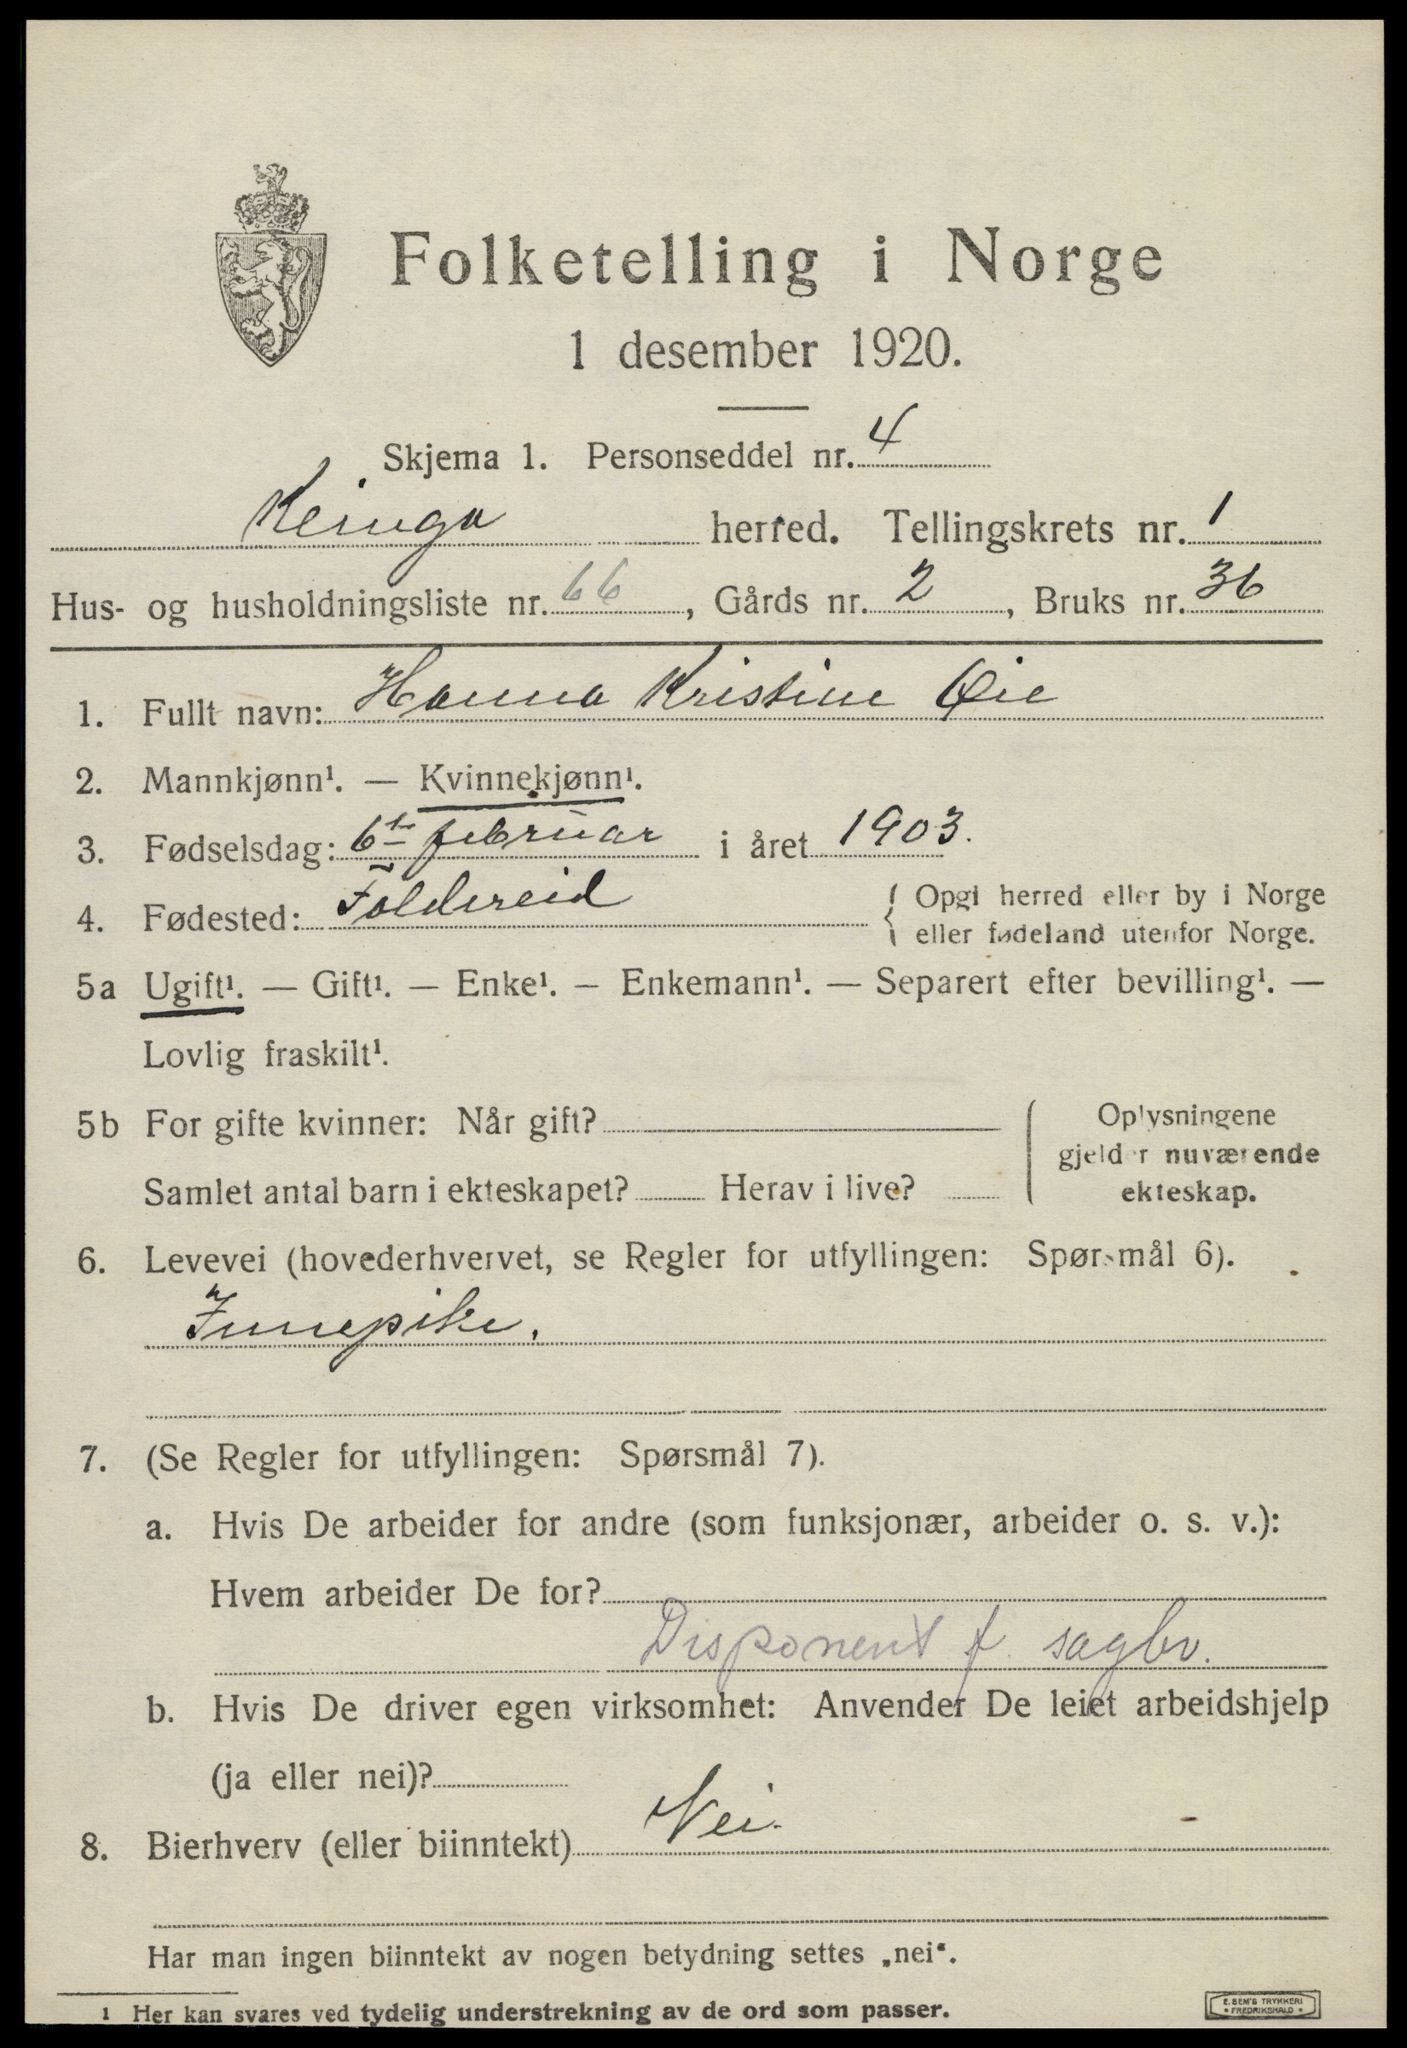 Folketelling i Norge
1 desember 1920.
Skjema 1. Personseddel nr. 4
herred. Tellingskrets nr. 1
Hus- og husholdningsliste nr. 66, Gårds nr. 2, Bruks nr. 36
1. Fullt navn: Hanna Kristine Øie
2. Mannkjønn¹. — Kvinnekjønn¹.
3. Fødselsdag: 6te februar i året 1903.
4. Fødested: Foldereid { Opgi herred eller by i Norge
eller fødeland utenfor Norge.
5a Ugift¹. — Gift¹. — Enke¹. — Enkemann¹. — Separert efter bevilling¹. —
Lovlig fraskilt¹.
5b For gifte kvinner: Når gift? { Oplysningene
gjelder nuværende
Samlet antal barn i ekteskapet? Herav i live? ekteskap.
6. Levevei (hovederhvervet, se Regler for utfyllingen: Spørsmål 6).
Innepike.
7. (Se Regler for utfyllingen: Spørsmål 7).
a. Hvis De arbeider for andre (som funksjonær, arbeider o. s. v.):
Hvem arbeider De for?
Disponent f. sagbr.
b. Hvis De driver egen virksomhet: Anvender De leiet arbeidshjelp
(ja eller nei)?
8. Bierhverv (eller biinntekt) Nei.
Har man ingen biinntekt av nogen betydning settes „nei“.
1 Her kan svares ved tydelig understrekning av de ord som passer.
E. SEM'S TRYKKERI
• FREDRIKSHALD •